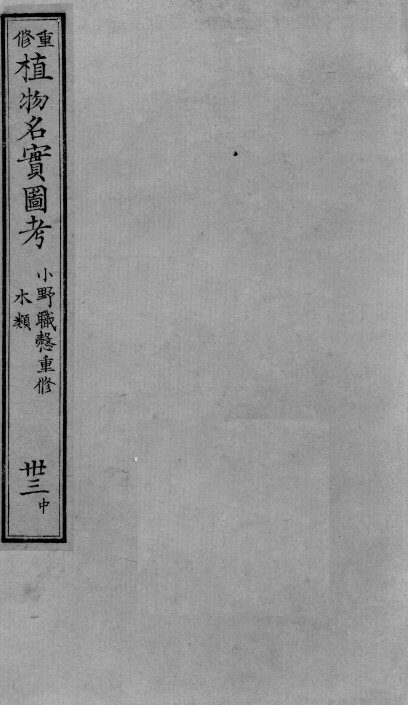 重修
植物名實圖考
小野職愨重修
木類
卅三中